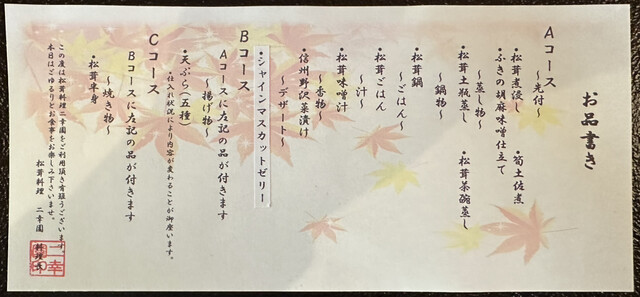 お品書き
Aコース
~先付~
・松茸煮浸し ・筍土佐煮
・ふきの胡麻味噌仕立て
~蒸し物~
・松茸土瓶蒸し ・松茸茶碗蒸し
~鍋物~
・松茸鍋
~ごはん~
・松茸ごはん
~汁~
・松茸味噌汁
~香物~
・信州野沢菜漬け
~デザート~
・シャインマスカットゼリー
Bコース
Aコースに左記の品が付きます
~揚げ物~
・天ぷら(五種)
・仕入れ状況により内容が変わることが御座います。
Cコース
Bコースに左記の品が付きます
~焼き物~
・松茸半身
この度は松茸料理二幸園をご利用頂き有難うございます。
本日はごゆるりとお食事をお楽しみ下さいませ。
松茸料理 二幸園 料理長
二幸